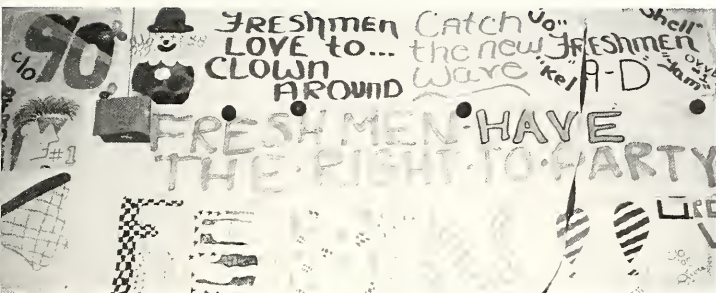 c/o 90
FRESHMEN
LOVE to...
CLOWN
AROUND
Catch
the new
Wave
"Jo"
"Kel"
"Shell"
FRESHMEN
A-D
"Jam"
J#1
FRESHMEN·HAVE
THE·RIGHT·TO·PARTY
FE